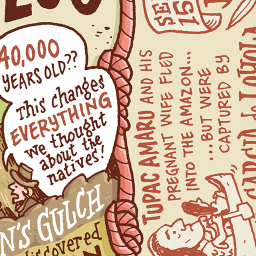 40,000
YEARS OLD??
This changes
EVERYTHING
we thought
about the
natives!
N'S GULCH
discovered
SE
15
TUPAC AMARU AND HIS
PREGNANT WIFE FLED
INTO THE AMAZON...
...BUT WERE
CAPTURED BY